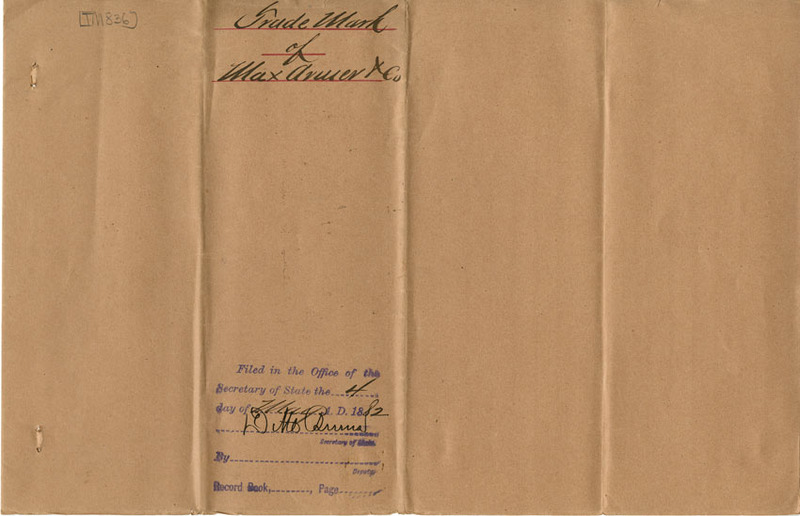 [TM836]
Trade Mark
of
Max Gruser & Co
Filed in the Office of the
Secretary of State the 4
day of A. D. 1882
Secretary of State.
By
Deputy
Record Book, , Page